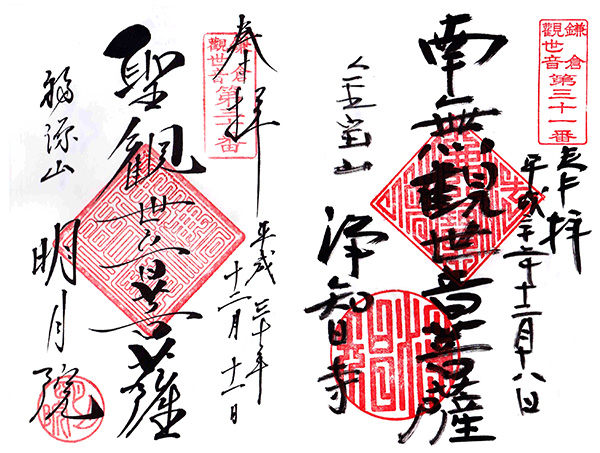 鎌倉
觀世音
第三十一番
奉拝
平成三十年十二月十八日
南無観世音菩薩
金宝山
浄智寺
鎌倉
觀世音
第三十番
奉拝
平成三十年
十二月十一日
聖観世音菩薩
福源山
明月院